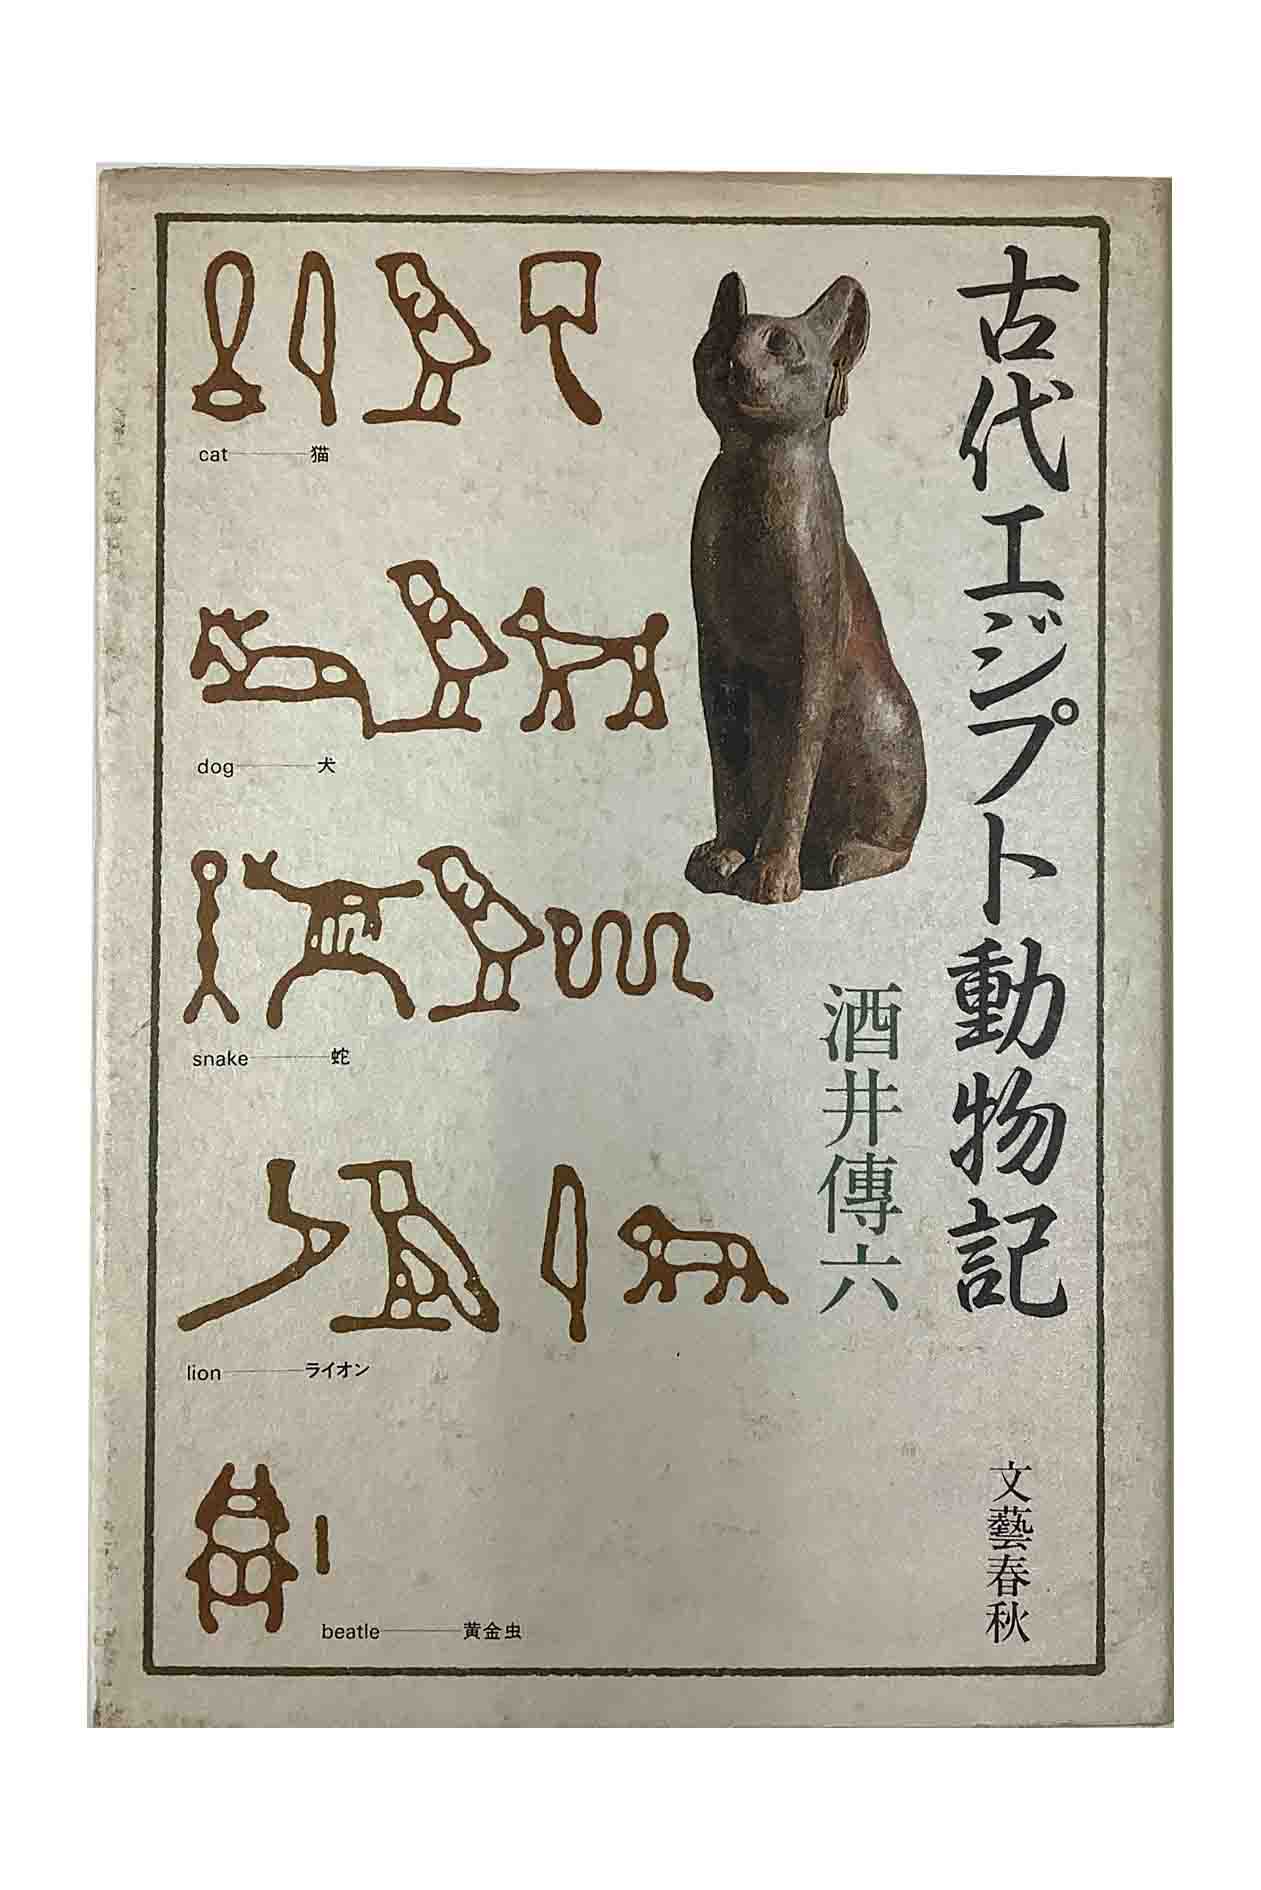 古代エジプト動物記
酒井傳六
文藝春秋
cat——猫
dog——犬
snake——蛇
lion——ライオン
beatle——黄金虫